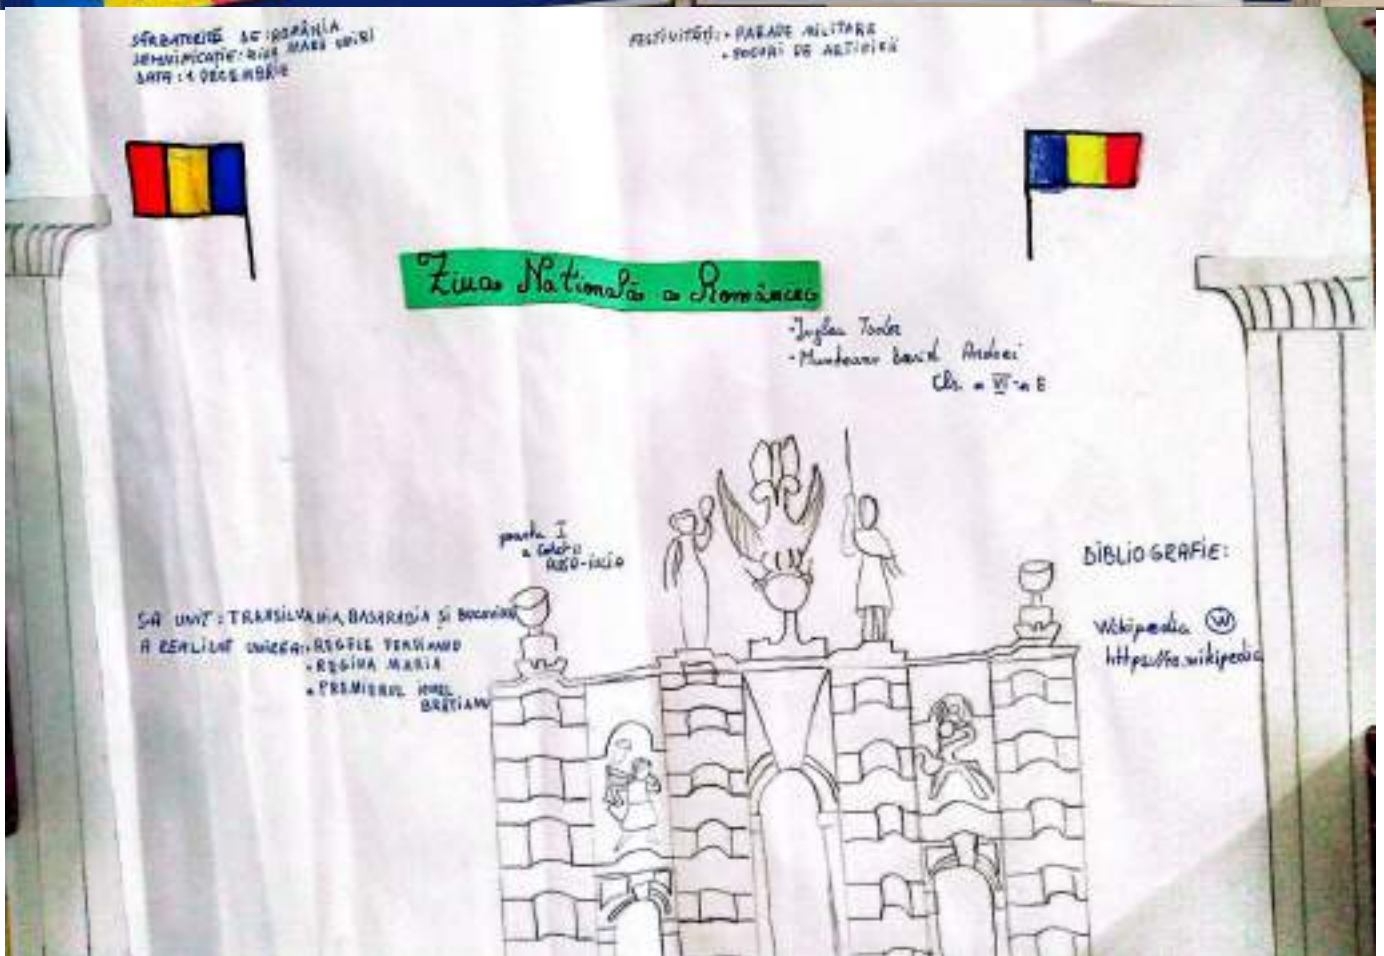 SĂRBĂTORITĂ DE: ROMÂNIA
SEMNIFICAȚIE: ZIUA MARII UNIRI
DATA: 1 DECEMBRIE
FESTIVITĂȚI: • PARADE MILITARE
• FOCURI DE ARTIFICII
Ziua Natională a României
- Tudor
- Munteanu David Andrei
Cls. a VI-a E
poarta I
a Cetății
ALBA-IULIA
S-A UNIT: TRANSILVANIA, BASARABIA ȘI BUCOVINA
A REALIZAT UNIREA: • REGELE FERDINAND
• REGINA MARIA
• PREMIERUL IONEL
BRĂTIANU
BIBLIOGRAFIE:
Wikipedia W
https://ro.wikipedia